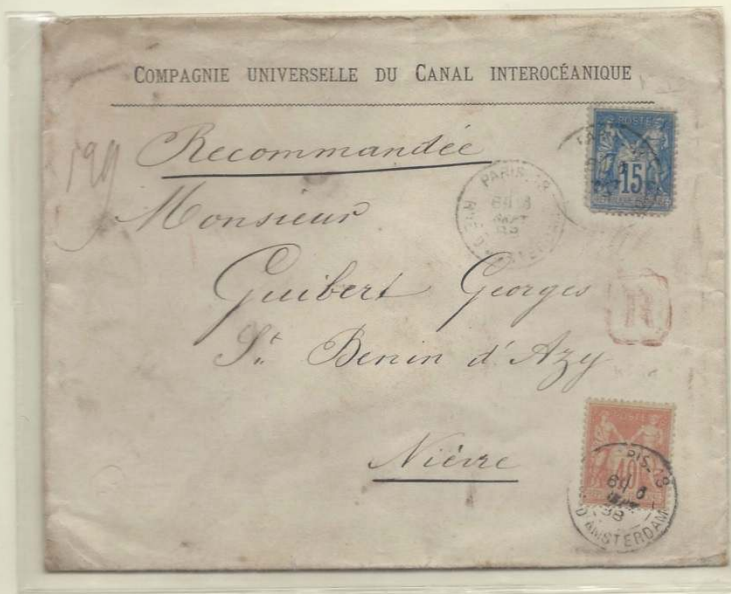 COMPAGNIE UNIVERSELLE DU CANAL INTEROCÉANIQUE
Recommandée
199
Monsieur
Guibert Georges
St Benin d'Azy
Nièvre
POSTES
15
PARIS. 18
R
40
PARIS. 18
88
D'AMSTERDAM